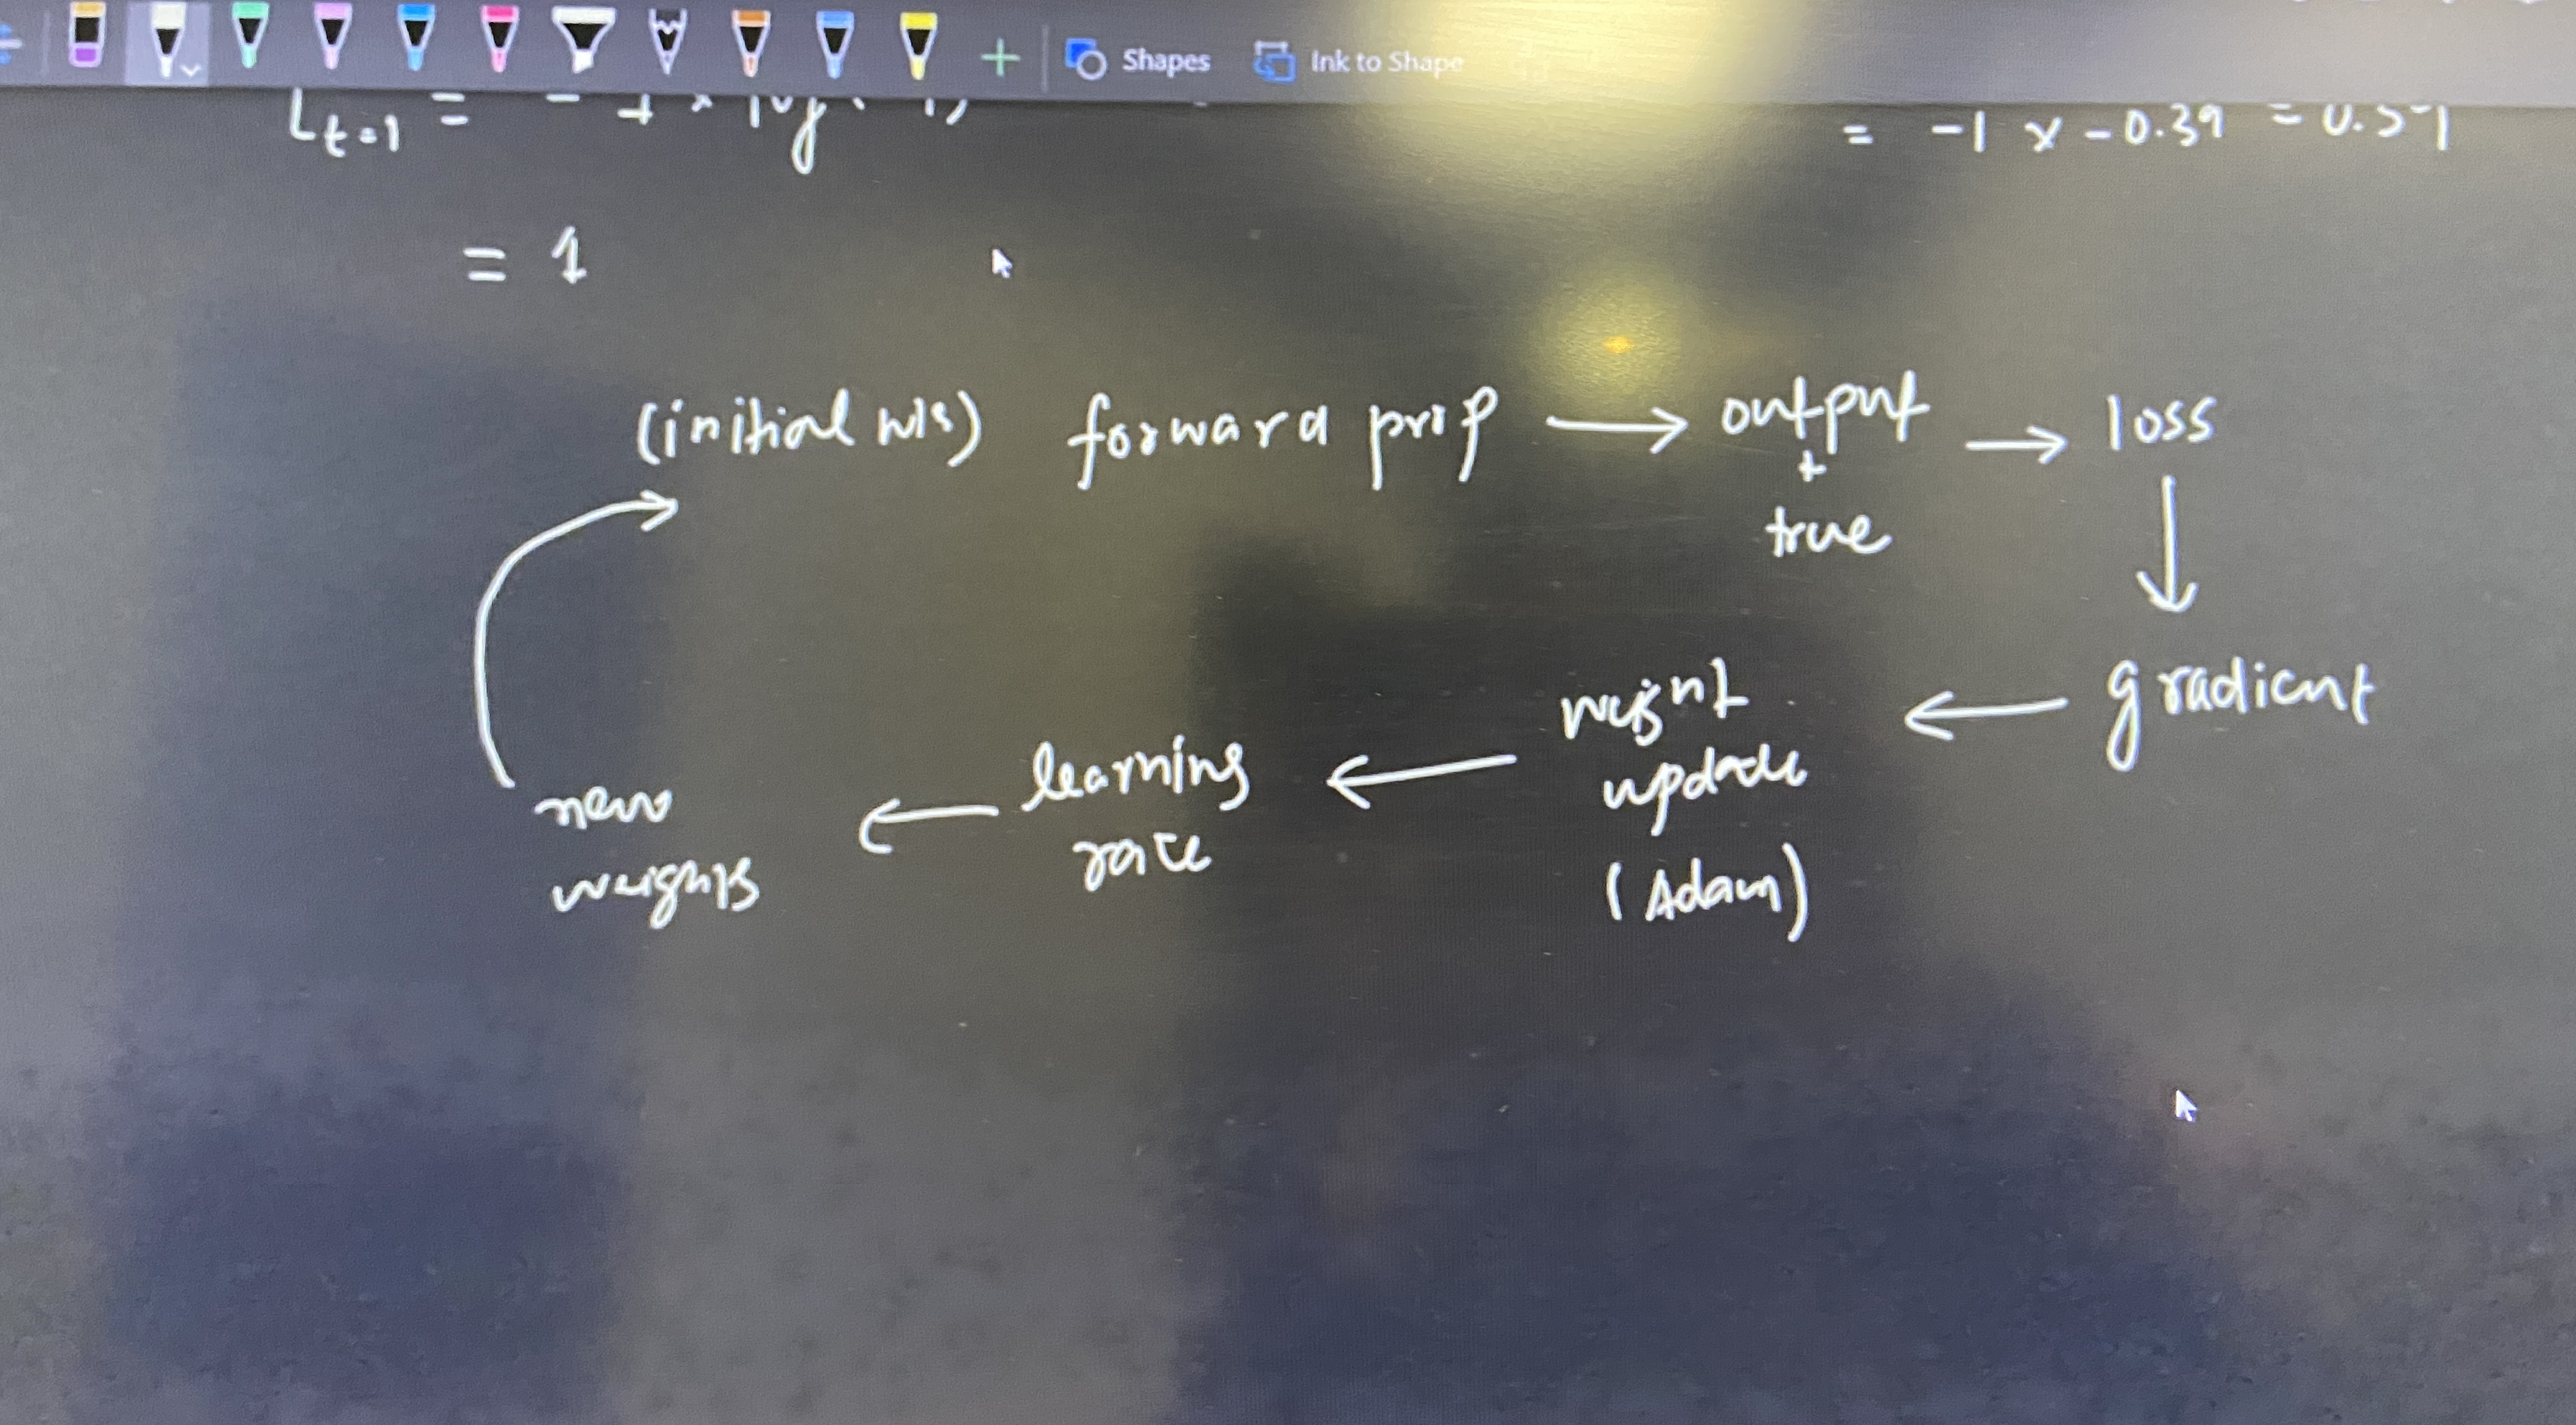 Shapes Ink to Shape
L t=1 = -
= -1 x -0.39 =
= 1
(initial w's) forward prop → output → loss
+
true
gradient
weight
update
(Adam)
learning
rate
new
weights